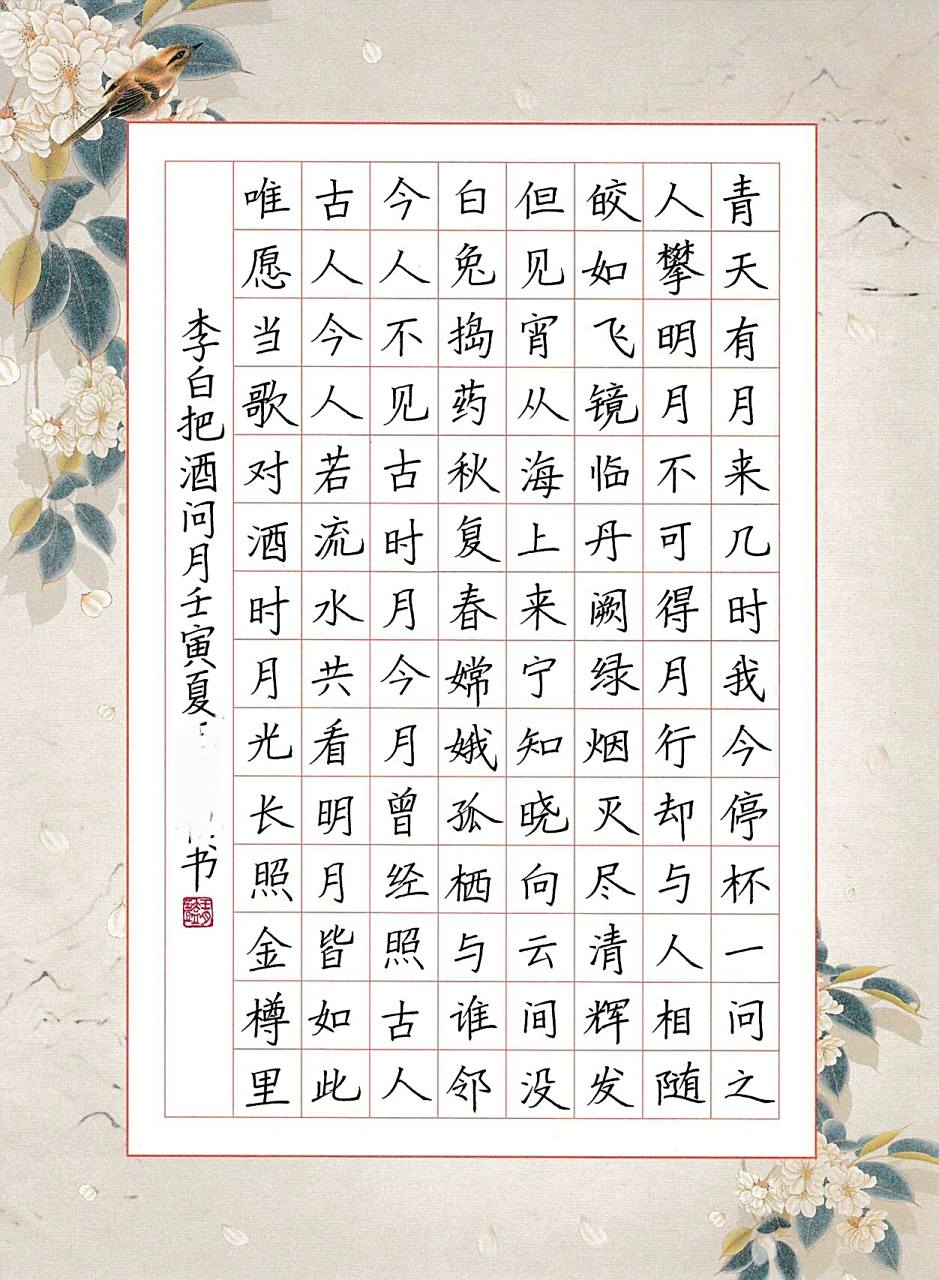 青天有月来几时我今停杯一问之
人攀明月不可得月行却与人相随
皎如飞镜临丹阙绿烟灭尽清辉发
但见宵从海上来宁知晓向云间没
白兔捣药秋复春嫦娥孤栖与谁邻
今人不见古时月今月曾经照古人
古人今人若流水共看明月皆如此
唯愿当歌对酒时月光长照金樽里
李白把酒问月壬寅夏
书